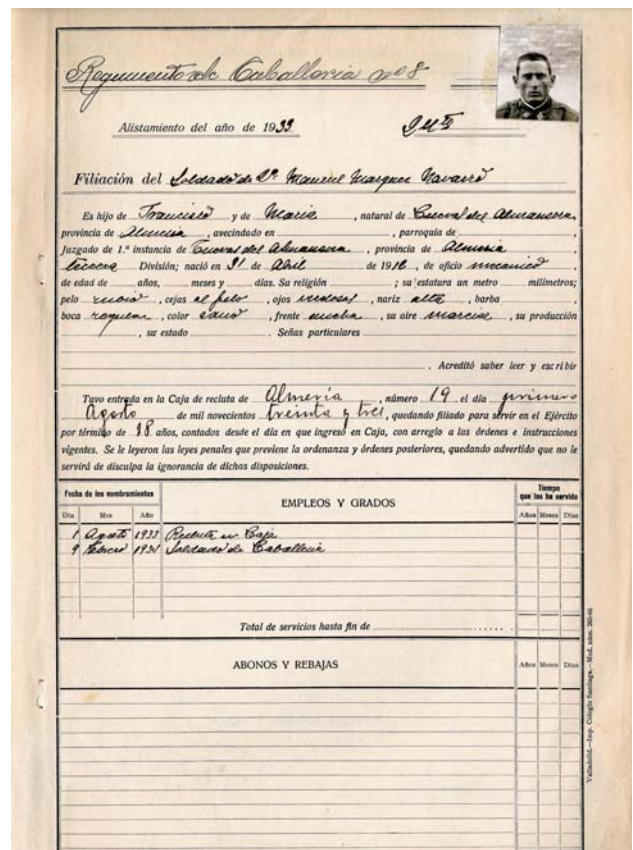 Regimiento de Caballeria nº 8
Alistamiento del año de 1933
Filiación del Soldado de 2ª Manuel Marquez Navarro
Es hijo de Francisco y de Maria, natural de Cuevas del Almanzora,
provincia de Almeria, avecindado en , parroquia de ,
Juzgado de 1.ª instancia de Cuevas del Almanzora, provincia de Almeria
tercera División; nació en de Abril de 1912, de oficio mecanico
de edad de años, meses y días. Su religión ; su estatura un metro milímetros;
pelo rubio, cejas al pelo, ojos , nariz alta, barba ,
boca regular, color sano, frente ancha, su aire marcial, su producción
, su estado . Señas particulares
. Acreditó saber leer y escribir
Tuvo entrada en la Caja de recluta de Almería, número 19 el día primero
Agosto de mil novecientos treinta y tres, quedando filiado para servir en el Ejército
por término de 18 años, contados desde el día en que ingresó en Caja, con arreglo a las órdenes e instrucciones
vigentes. Se le leyeron las leyes penales que previene la ordenanza y órdenes posteriores, quedando advertido que no le
servirá de disculpa la ignorancia de dichas disposiciones.
Fecha de los nombramientos
EMPLEOS Y GRADOS
Tiempo que los ha servido
Día Mes Año
Años Meses Días
1 Agosto 1933 Recluta en Caja
9 Febrero 1934 Soldado de Caballeria
Total de servicios hasta fin de
ABONOS Y REBAJAS
Años Meses Días
Valladolid.—Imp. Colegio Santiago.—Mod. núm.